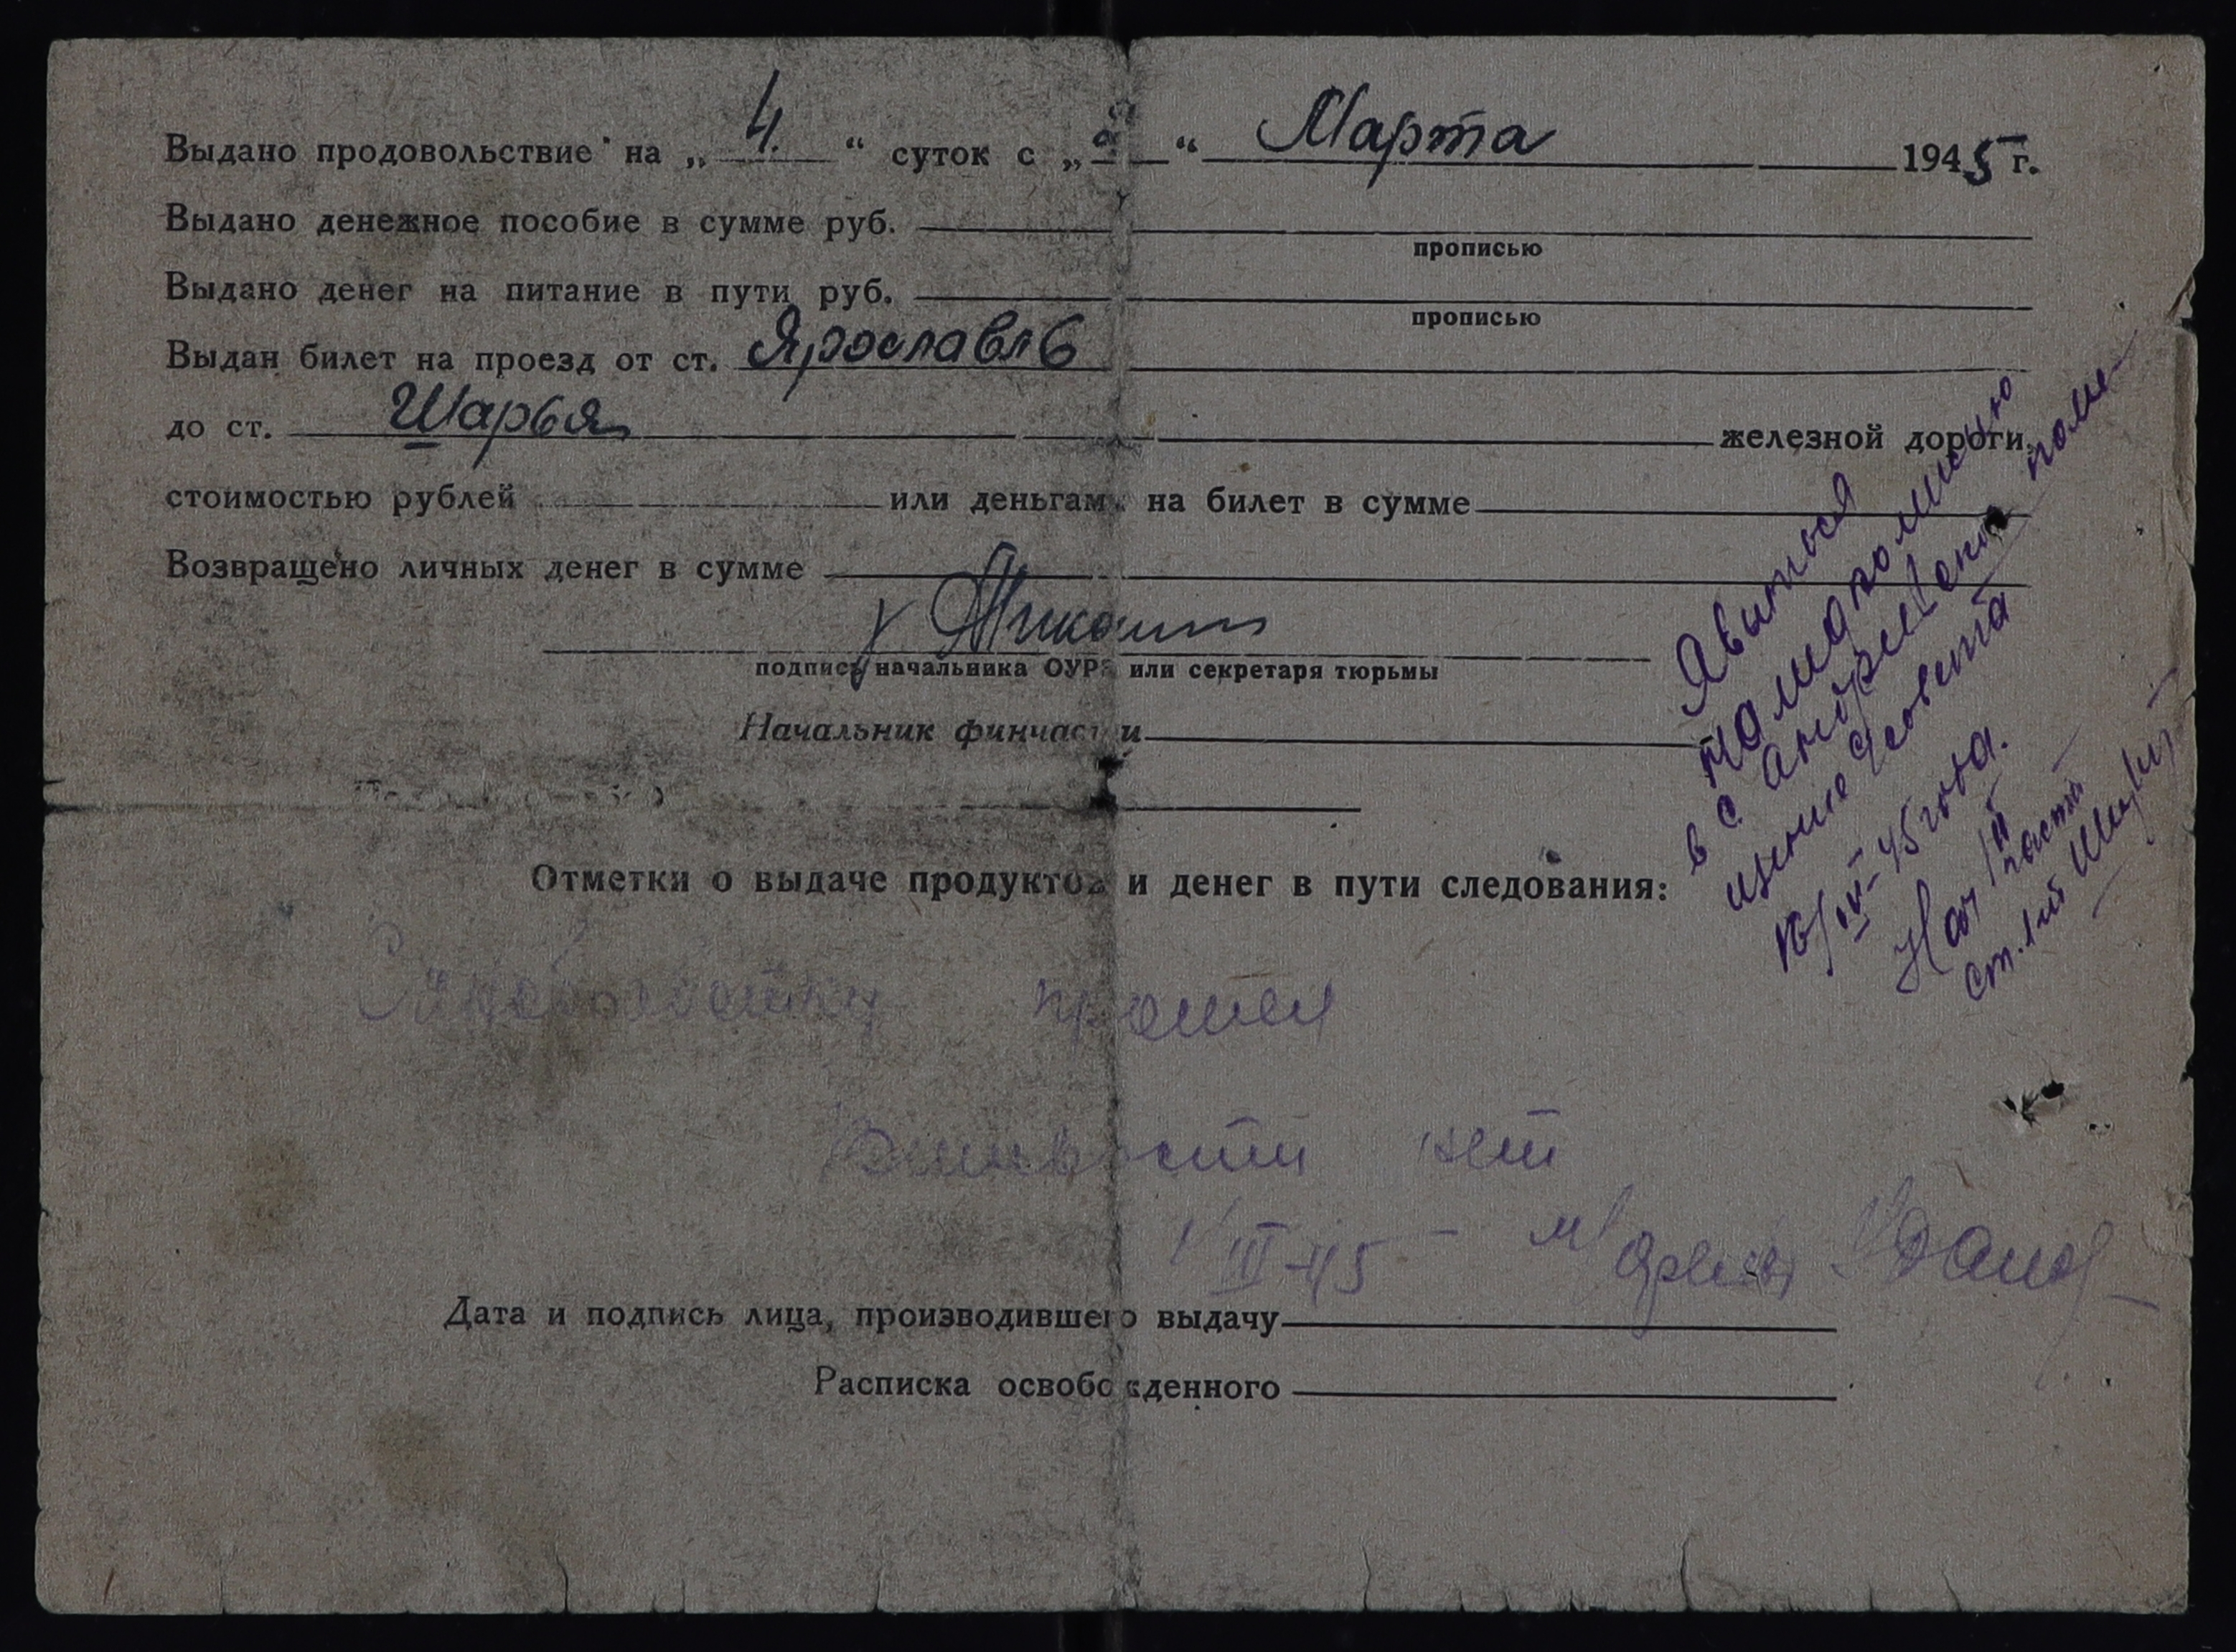 Выдано продовольствие на „ 4. “ суток с „ “ Марта 1945 г.
Выдано денежное пособие в сумме руб.
прописью
Выдано денег на питание в пути руб.
прописью
Выдан билет на проезд от ст. Ярославль
до ст. Шарья железной дороги,
стоимостью рублей или деньгами на билет в сумме
Возвращено личных денег в сумме
подпись начальника ОУРЗ или секретаря тюрьмы
Начальник финчасти
Отметки о выдаче продуктов и денег в пути следования:
Санобработку прошел
Вшивости нет
1/III-45 -
Дата и подпись лица, производившего выдачу
Расписка освобожденного
Явиться
на медкомиссию
в с
щение с/совета
16/IV-45 года.
Нач части
ст. л-т